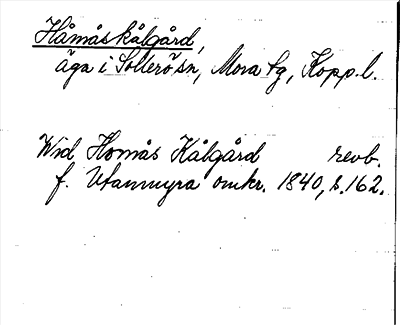 Håmåskålgård,
äga i Sollerö sn, Mora tg, Kopp. l.
Wid Homås Kålgård revb.
f. Utanmyra omkr. 1840, s. 162.